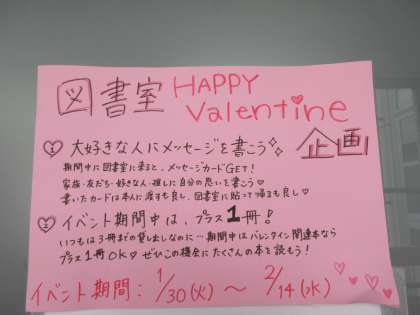 図書室 HAPPY Valentine 企画
① 大好きな人にメッセージを書こう
期間中に図書室に来ると、メッセージカードGET!
家族・友だち・好きな人・推しに自分の思いを書こう♡
書いたカードは本人に渡すも良し、図書室に貼って帰るも良し♡
② イベント期間中は、プラス1冊!
いつもは3冊までの貸し出しなのに…期間中はバレンタイン関連本なら
プラス1冊OK♡ ぜひこの機会にたくさんの本を読もう!
イベント期間:1/30(火)〜2/14(水)